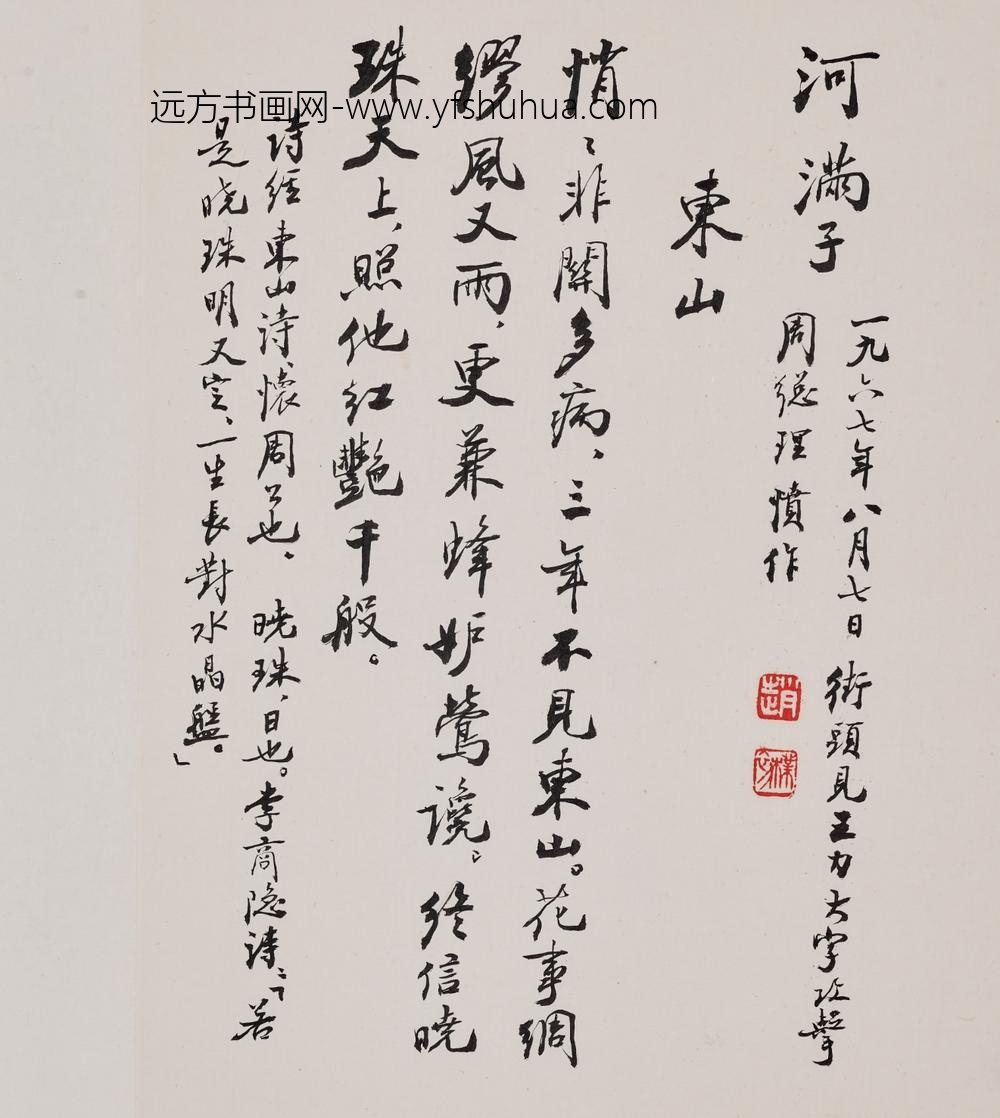 河满子
一九六七年八月七日街頭見王力大字攻擊
周総理憤作
東山
悄〻非關多病、三年不見東山。花事綢
繆風又雨、更兼蜂妒鶯讒。〻終信曉
珠天上、照他红艷千般。
诗经東山诗、懷周公也、曉珠、日也。李商隐诗：「若
是晓珠明又定、一生長對水晶盤。」
趙
樸初
远方书画网-www.yfshuhua.com